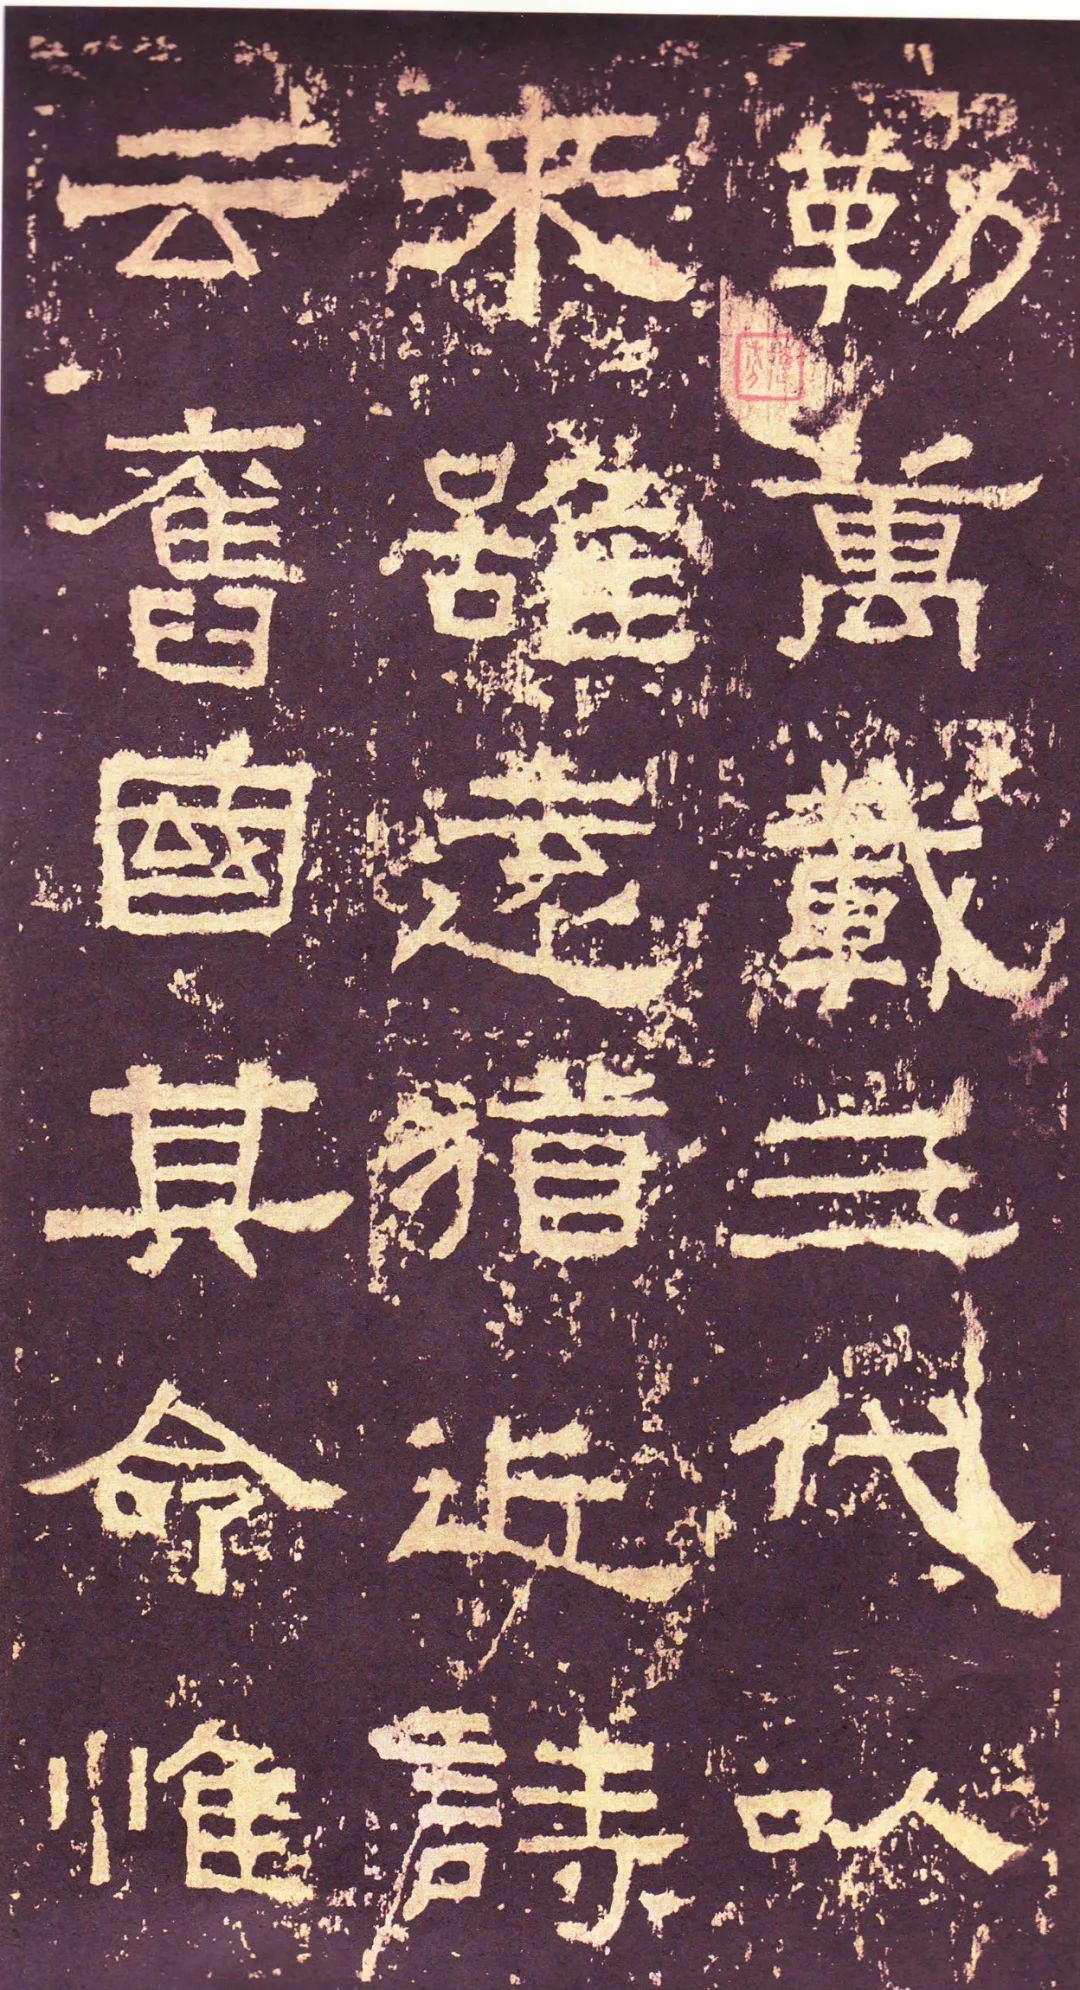 勒萬載三代以
來雖遠猶近詩
云舊國其命惟